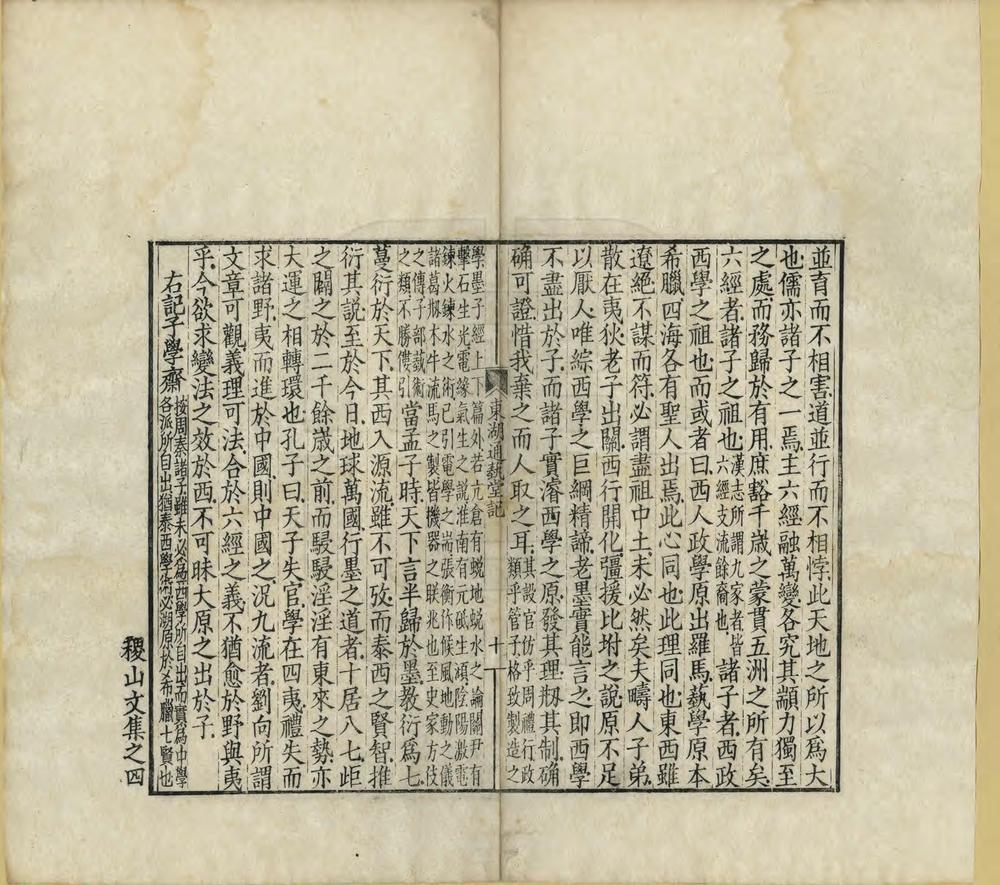 並育而不相害道並行而不相悖此天地之所以爲大
也儒亦諸子之一焉主六經融萬變各究其顓力獨至
之處而務歸於有用庶豁千歲之蒙貫五洲之所有矣
六經者諸子之祖也漢志所謂九家者皆六經支流餘裔也諸子者西政
西學之祖也而或者曰西人政學原出羅馬藝學原本
希臘四海各有聖人出焉此心同也此理同也東西雖
遼絕不謀而符必謂盡祖中土未必然矣夫疇人子弟
散在夷狄老子出關西行開化彊援比附之說原不足
以厭人唯綜西學之巨綱精諦老墨實能言之即西學
不盡出於子而諸子實濬西學之原發其理剏其制確
确可證惜我棄之而人取之耳其設官仿乎周禮行政類乎管子格致製造之
東湖通藝堂記
十一
學墨子經上下篇外若亢倉有蛻地蛻水之論關尹有
擊石生光電緣氣生之說淮南有元砥生澒陰陽激電
鍊火鍊水之術已引電學之耑張衡作候風地動之儀
諸葛剏木牛流馬之製皆機器之联兆也至史家方伎
之傳子部蓺術之類不勝僂引當孟子時天下言半歸於墨教衍爲七
蔓衍於天下其西入源流雖不可攷而泰西之賢智推
衍其說至於今日地球萬國行墨之道者十居八七距
之闢之於二千餘歲之前而駸駸淫淫有東來之勢亦
大運之相轉環也孔子曰天子失官學在四夷禮失而
求諸野夷而進於中國則中國之況九流者劉向所謂
文章可觀義理可法合於六經之義不猶愈於野與夷
乎今欲求變法之效於西不可昧大原之出於子
右記子學齋按周秦諸子雖未必各爲西學所自出而實爲中學各派所自出猶泰西學術必溯原於希臘七賢也
稷山文集之四